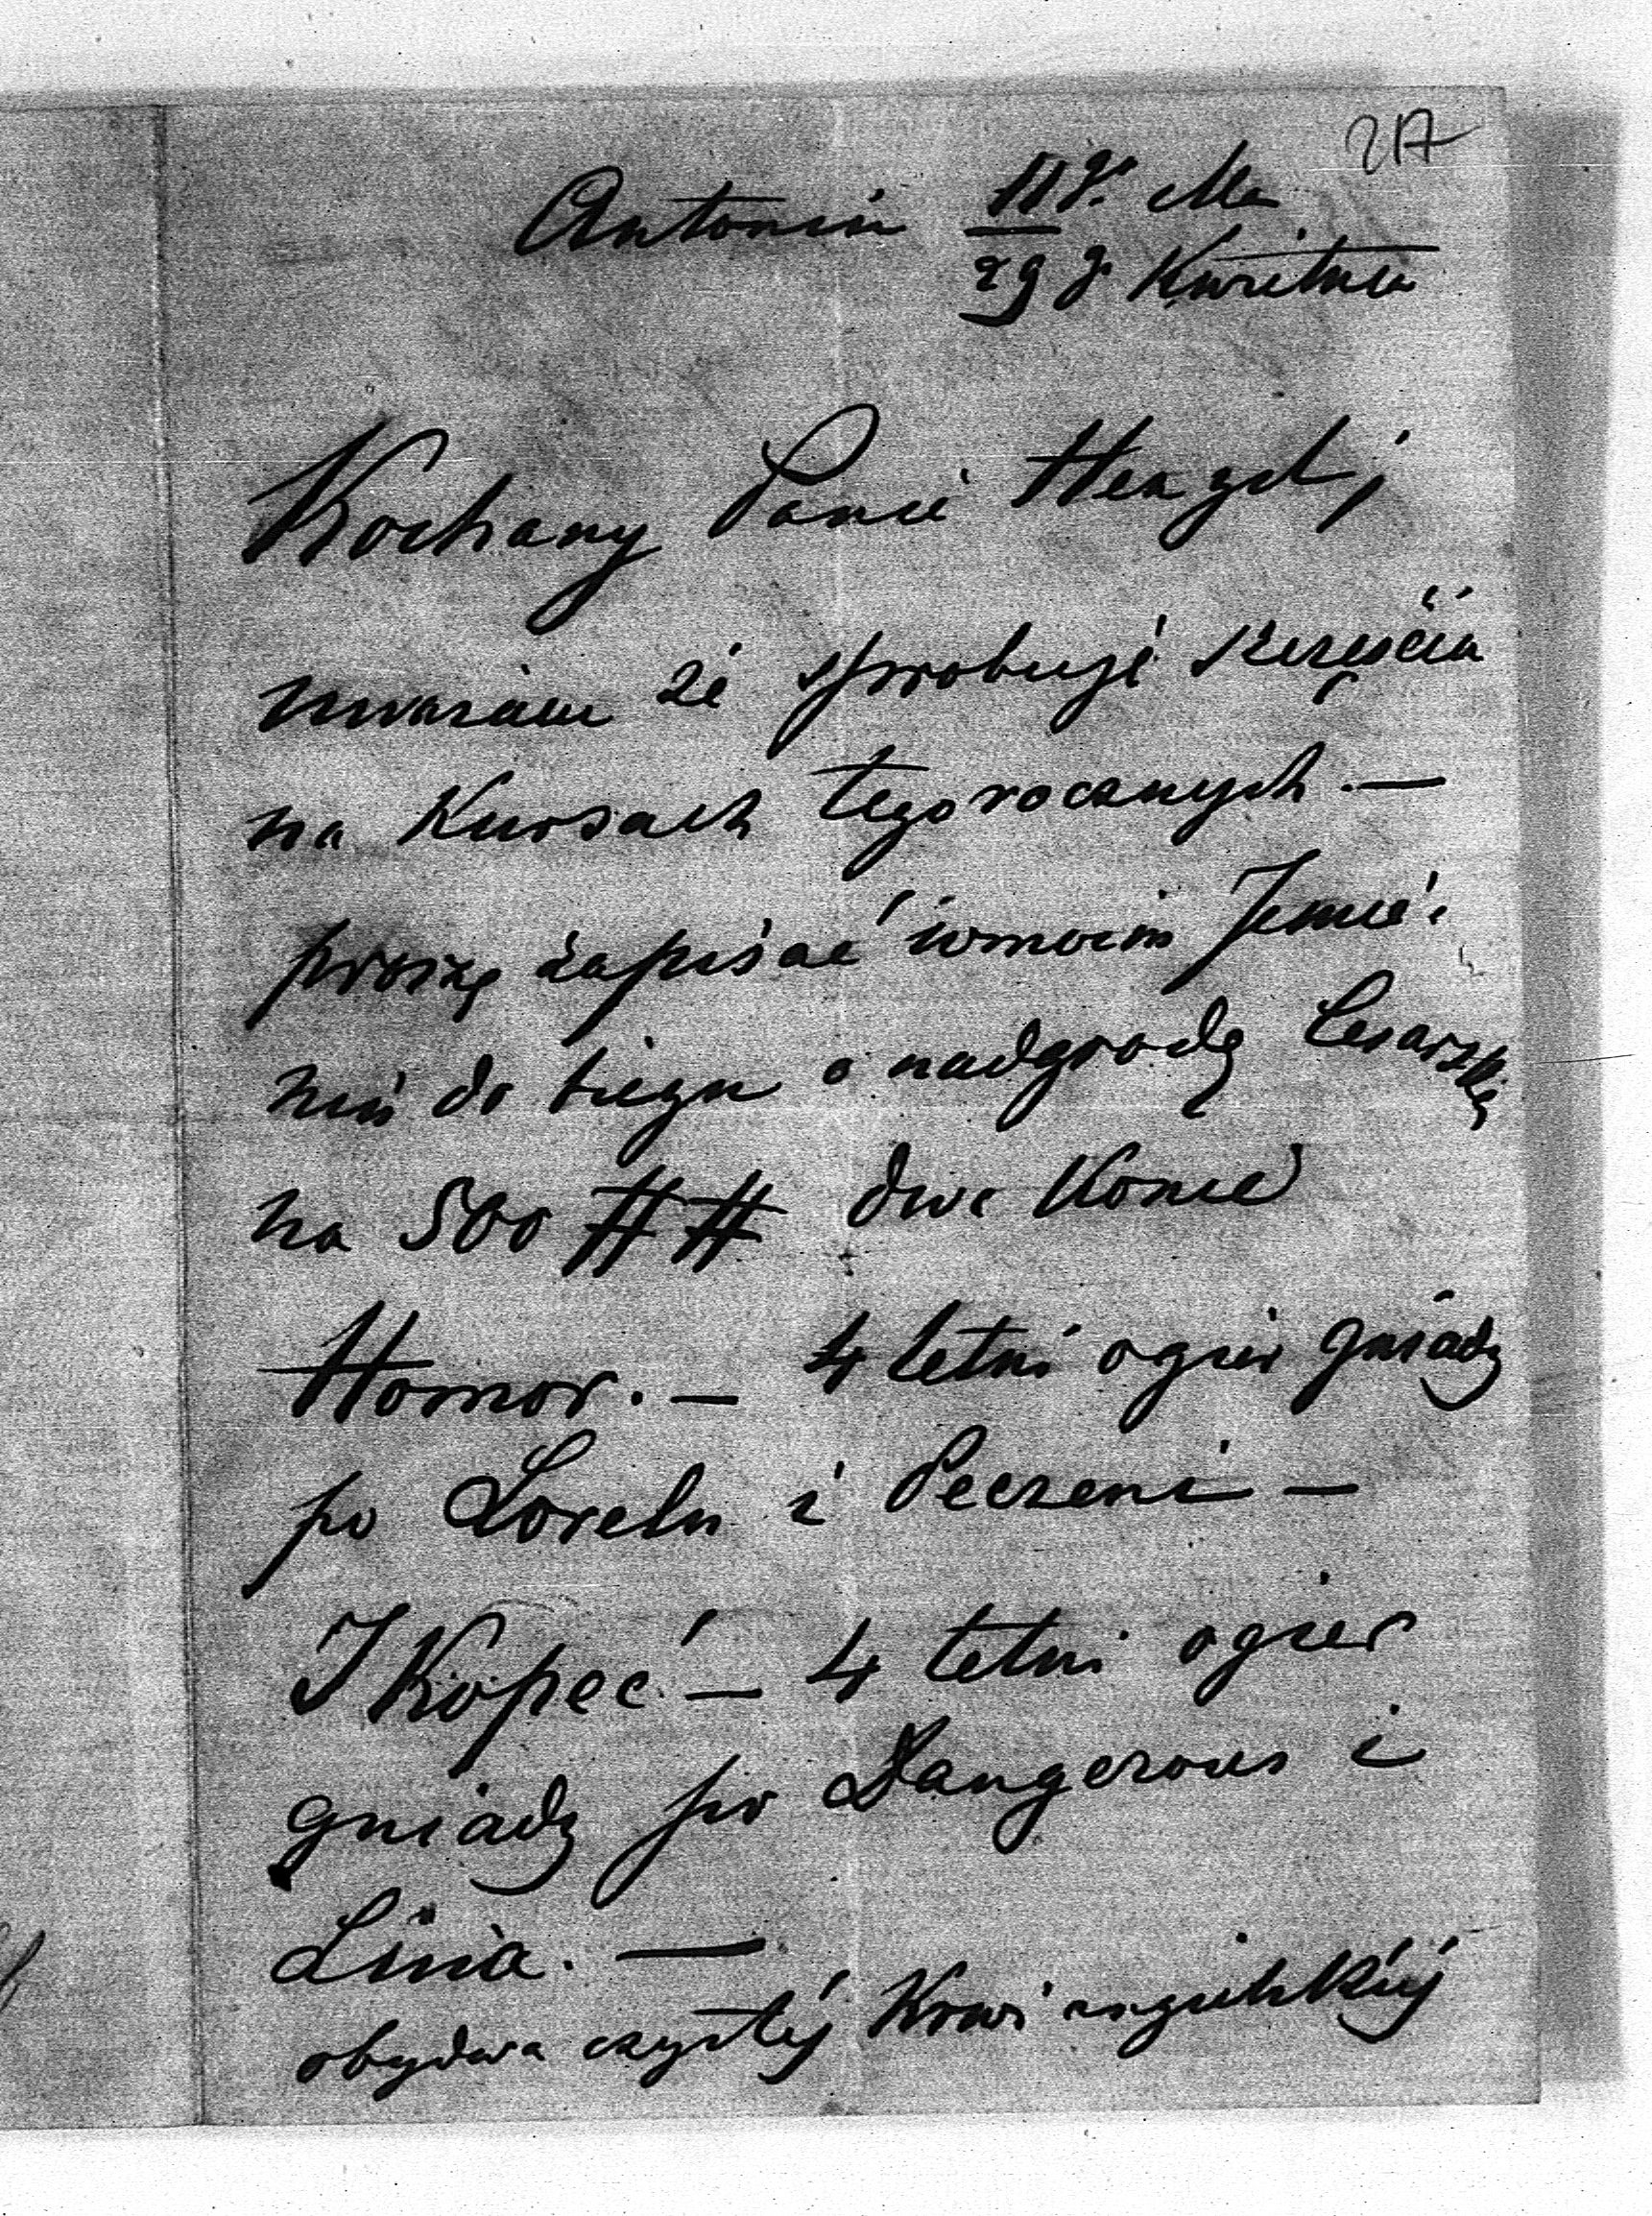 217
Antonin 11 g. Ma
29 g Kwietnia
Kochany Panie
uwariam że sprobuję szczęścia
na Kursach tegorocznych. —
proszę zapisać w moim Jmie-
niu do biegu o nadgrodę Cesarską
na 500 ## dwa Konie
Homor. — 4 letni ogier gniady
po Lorelu i Peczeni —
I Kopeć — 4 letni ogier
gniady po Dangerous i
Linia. —
obydwa czystéj Krwi angielskiéj